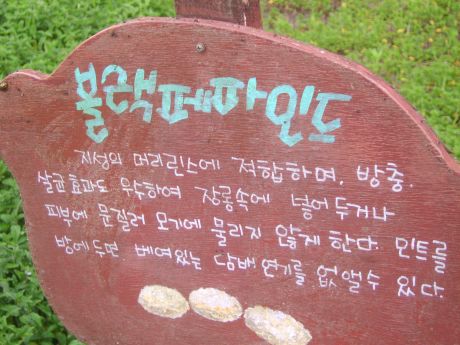 블랙페파민트
지성의 머리린스에 적합하며, 방충.
살균효과도 우수하여 장롱속에 넣어두거나
피부에 문질러 모기에 물리지 않게 한다. 민트를
방에두면 베여있는 담배연기를 없앨수 있다.